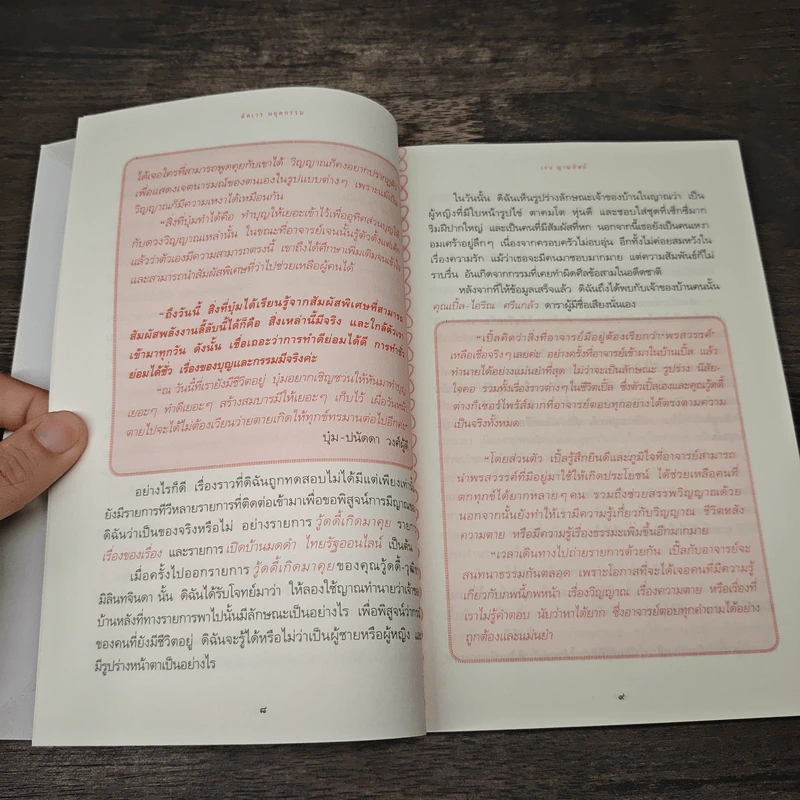 ตัดเวร หยุดกรรม
ได้เจอใครที่สามารถพูดคุยกับเขาได้ วิญญาณก็คงอยากปรากฏตัว
เพื่อแสดงเจตนารมณ์ของตนเองในรูปแบบต่างๆ เพราะแม้เป็น
วิญญาณก็มีความเหงาได้เหมือนกัน
“สิ่งที่บุ๋มทำได้คือ ทำบุญให้เยอะเข้าไว้เพื่ออุทิศส่วนบุญให้
กับดวงวิญญาณเหล่านั้น ในขณะที่อาจารย์เจนนั้นรู้ตัวตั้งแต่เด็ก
แล้วว่าตัวเองมีความสามารถตรงนี้ เขาถึงได้ศึกษาเพิ่มเติมจนเข้าใจ
และสามารถนำสัมผัสพิเศษที่ว่าไปช่วยเหลือผู้คนได้
“ถึงวันนี้ สิ่งที่บุ๋มได้เรียนรู้จากสัมผัสพิเศษที่สามารถ
สัมผัสพลังงานลี้ลับนี้ได้ก็คือ สิ่งเหล่านี้มีจริง และใกล้ตัวเรา
เข้ามาทุกวัน ดังนั้น เชื่อเถอะว่าการทำดีย่อมได้ดี การทำชั่ว
ย่อมได้ชั่ว เรื่องของบุญและกรรมมีจริงค่ะ
“ณ วันนี้ที่เรายังมีชีวิตอยู่ บุ๋มอยากเชิญชวนให้หันมาทำบุญ
เยอะๆ ทำดีเยอะๆ สร้างสมบารมีให้เยอะๆ เก็บไว้ เผื่อวันหนึ่ง
ตายไปจะได้ไม่ต้องเวียนว่ายตายเกิดให้ทุกข์ทรมานต่อไปอีกค่ะ”
บุ๋ม-ปนัดดา วงศ์ผู้ดี
อย่างไรก็ดี เรื่องราวที่ดิฉันถูกทดสอบไม่ได้มีแต่เพียงเท่านี้
ยังมีรายการทีวีหลายรายการที่ติดต่อเข้ามาเพื่อขอพิสูจน์การมีญาณของ
ดิฉันว่าเป็นของจริงหรือไม่ อย่างรายการ วู้ดดี้เกิดมาคุย รายการ
เรื่องของเรื่อง และรายการ เปิดบ้านมดดำ ไทยรัฐออนไลน์ เป็นต้น
เมื่อครั้งไปออกรายการ วู้ดดี้เกิดมาคุย ของคุณวู้ดดี้-วุฒิธร
มิลินทจินดา นั้น ดิฉันได้รับโจทย์มาว่า ให้ลองใช้ญาณทำนายว่าเจ้าของ
บ้านหลังที่ทางรายการพาไปนั้นมีลักษณะเป็นอย่างไร เพื่อพิสูจน์ว่ากรณี
ของคนที่ยังมีชีวิตอยู่ ดิฉันจะรู้ได้หรือไม่ว่าเป็นผู้ชายหรือผู้หญิง และ
มีรูปร่างหน้าตาเป็นอย่างไร
๘
เจน ญาณทิพย์
ในวันนั้น ดิฉันเห็นรูปร่างลักษณะเจ้าของบ้านในญาณว่า เป็น
ผู้หญิงที่มีใบหน้ารูปไข่ ตาคมโต หุ่นดี และชอบใส่ชุดที่เซ็กซี่มาก
ริมฝีปากใหญ่ และเป็นคนที่มีสัมผัสที่หก นอกจากนี้เธอยังเป็นคนเหงา
อมเศร้าอยู่ลึกๆ เนื่องจากครอบครัวไม่อบอุ่น อีกทั้งไม่ค่อยสมหวังใน
เรื่องความรัก แม้ว่าเธอจะมีคนมาชอบมากมาย แต่ความสัมพันธ์ก็ไม่
ราบรื่น อันเกิดจากกรรมที่เคยทำผิดศีลข้อสามในอดีตชาติ
หลังจากที่ให้ข้อมูลเสร็จแล้ว ดิฉันถึงได้พบกับเจ้าของบ้านคนนั้น
คุณเปิ้ล-ไอริณ ศรีแกล้ว ดาราผู้มีชื่อเสียงนั่นเอง
“เปิ้ลคิดว่าสิ่งที่อาจารย์มีอยู่ต้องเรียกว่า ‘พรสวรรค์’
เหลือเชื่อจริงๆ เลยค่ะ อย่างครั้งที่อาจารย์เข้ามาในบ้านเปิ้ล แล้ว
ทำนายได้อย่างแม่นยำที่สุด ไม่ว่าจะเป็นลักษณะ รูปร่าง นิสัย-
ใจคอ รวมทั้งเรื่องราวต่างๆ ในชีวิตเปิ้ล ซึ่งตัวเปิ้ลเองและคุณวู้ดดี้
ต่างก็เซอร์ไพร้ส์มากที่อาจารย์ตอบทุกอย่างได้ตรงตามความ
เป็นจริงทั้งหมด
“โดยส่วนตัว เปิ้ลรู้สึกยินดีและภูมิใจที่อาจารย์สามารถ
นำพรสวรรค์ที่มีอยู่มาใช้ให้เกิดประโยชน์ ได้ช่วยเหลือคนที่
ตกทุกข์ได้ยากหลายๆ คน รวมถึงช่วยสรรพวิญญาณด้วย
นอกจากนั้นยังทำให้เรามีความรู้เกี่ยวกับวิญญาณ ชีวิตหลัง
ความตาย หรือมีความรู้เรื่องธรรมะเพิ่มขึ้นอีกมากมาย
“เวลาเดินทางไปถ่ายรายการด้วยกัน เปิ้ลกับอาจารย์จะ
สนทนาธรรมกันตลอด เพราะโอกาสที่จะได้เจอคนที่มีความรู้
เกี่ยวกับภพนี้ภพหน้า เรื่องวิญญาณ เรื่องความตาย หรือเรื่องที่
เราไม่รู้คำตอบ นับว่าหาได้ยาก ซึ่งอาจารย์ตอบทุกคำถามได้อย่าง
ถูกต้องและแม่นยำ
๙